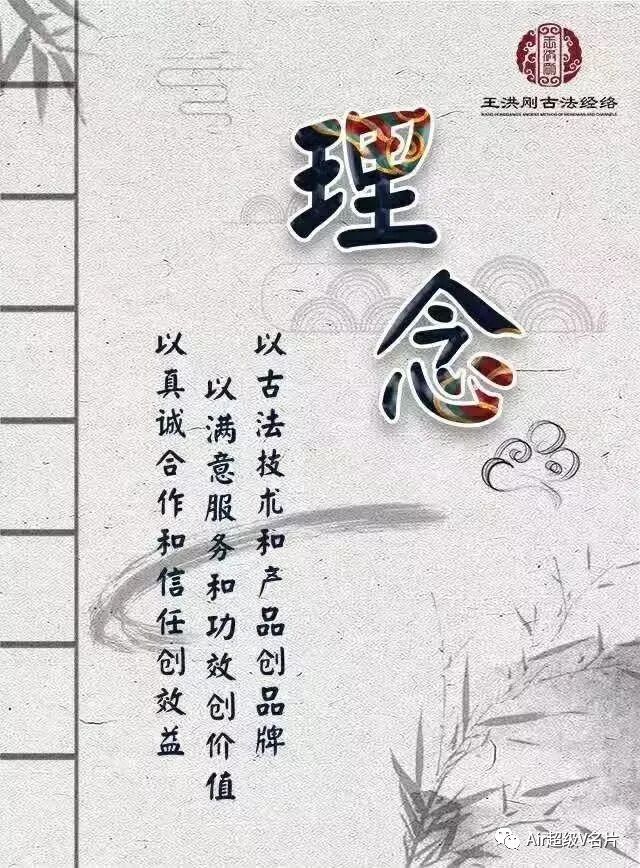 王洪刚古法经络
理念
以古法技术和产品创品牌
以满意服务和功效创价值
以真诚合作和信任创效益
Air超级V名片